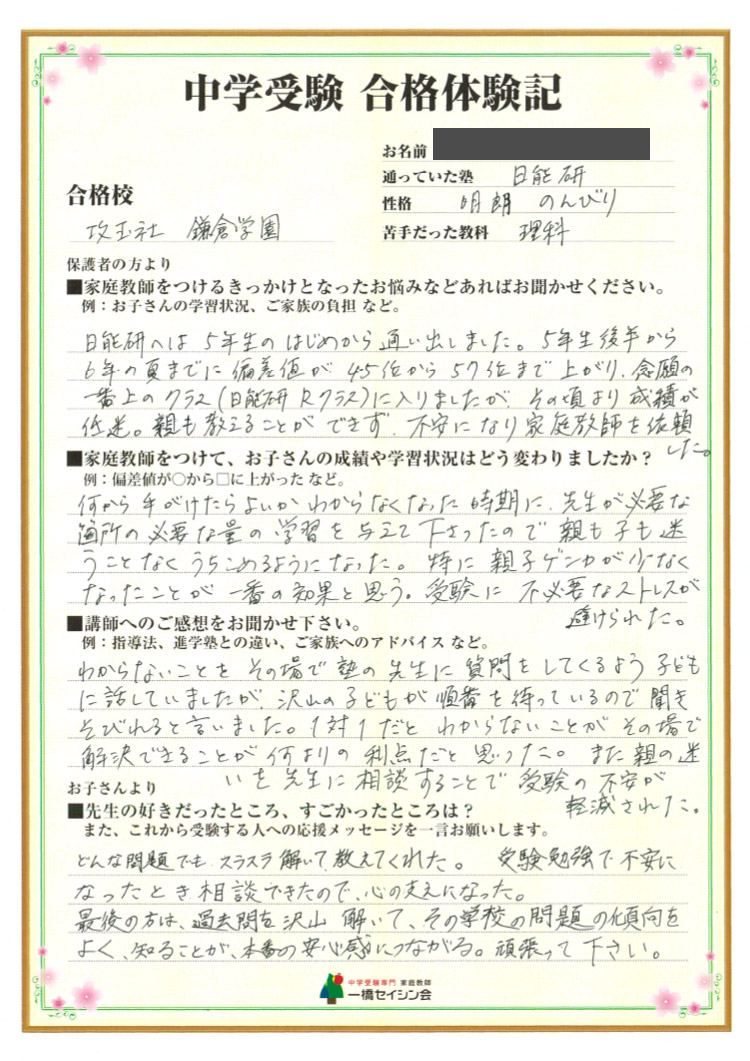 中学受験 合格体験記
お名前
通っていた塾 日能研
合格校
性格 明朗 のんびり
攻玉社 鎌倉学園
苦手だった教科 理科
保護者の方より
■家庭教師をつけるきっかけとなったお悩みなどあればお聞かせください。
例：お子さんの学習状況、ご家族の負担 など。
日能研へは5年生のはじめから通い出しました。5年生後半から
6年の夏までに偏差値が45位から57位まで上がり、念願の
一番上のクラス(日能研Rクラス)に入りましたが、その頃より成績が
低迷。親も教えることができず、不安になり家庭教師を依頼
した。
■家庭教師をつけて、お子さんの成績や学習状況はどう変わりましたか？
例：偏差値が○から□に上がった など。
何から手がけたらよいかわからなくなった時期に、先生が必要な
箇所の必要な量の学習を与えて下さったので親も子も迷
うことなくうちこめるようになった。特に親子ゲンカが少なく
なったことが一番の効果と思う。受験に不必要なストレスが
避けられた。
■講師へのご感想をお聞かせ下さい。
例：指導法、進学塾との違い、ご家族へのアドバイス など。
わからないことをその場で塾の先生に質問をしてくるよう子ども
に話していましたが、沢山の子どもが順番を待っているので聞き
そびれると言いました。1対1だとわからないことがその場で
解決できることが何よりの利点だと思った。また親の迷
いを先生に相談することで受験の不安が
軽減された。
お子さんより
■先生の好きだったところ、すごかったところは？
また、これから受験する人への応援メッセージを一言お願いします。
どんな問題でもスラスラ解いて教えてくれた。 受験勉強で不安に
なったとき相談できたので、心の支えになった。
最後の方は、過去問を沢山解いて、その学校の問題の傾向を
よく、知ることが、本番の安心感につながる。頑張って下さい。
中学受験専門 家庭教師
一橋セイシン会